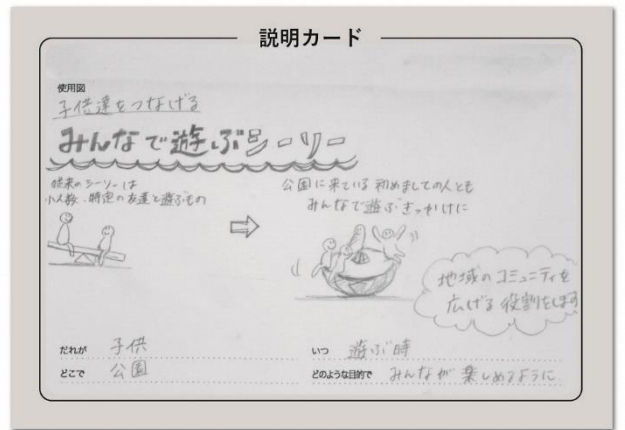 説明カード
使用図
子供達をつなげる
みんなで遊ぶシーソー
従来のシーソーは
小人数、特定の友達と遊ぶもの
公園に来ている初めましての人とも
みんなで遊ぶきっかけに
地域のコミュニティを
広げる役割をします
だれが 子供
いつ 遊ぶ時
どこで 公園
どのような目的で みんなが楽しめるように